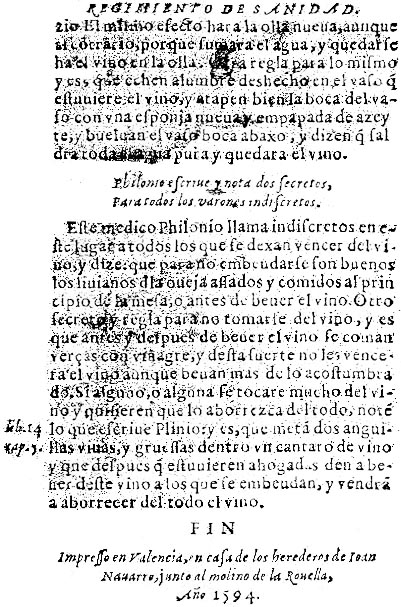 REGIMIENTO DE SANIDAD.
zio El mismo efecto hara la olla nueua, aunque
al cōtrario, porque sumara el agua, y quedarse
ha el vino en la olla. Otra regla para lo mismo
y es, que echen alumbre deshecho en el vaso q̃
estuuiere el vino, y atapen bien la boca del va-
so con vna esponja nueua y empapada de azey
te, y bueluan el vaso boca abaxo, y dizen q̃ sal
dra toda agua pura y quedara el vino.
Philonio escriue y nota dos secretos,
Para todos los varones indiscretos.
Este medico Philonio llama indiscretos en e-
ste lugar a todos los que se dexan vencer del vi-
no, y dize: que para no embeudarse son buenos
los liuianos d̃la oueja assados y comidos al prin
cipio de la mesa, o antes de beuer el vino. Otro
secreto y regla para no tomarse del vino, y es
que antes y despues de beuer el vino se coman
verças con vinagre, y desta suerte no les vence-
ra el vino aunque beuan mas de lo acostumbra
do. Si alguno, o alguna se tocare mucho del vi-
no y quisieren que lo aborrezca del todo, note
lo que escriue Plinio: y es, que metā dos angui-
llas viuas, y gruessas dentro vn cantaro de vino
y que despues q̃ estuuieren ahogadas den a be-
uer deste vino a los que se embeudan, y vendrā
a aborrecer del todo el vino.
lib. 14
cap. 7.
FIN
Impresso en Valencia, en casa de los herederos de Ioan
Nauarro, junto al molino de la Rouella,
Año 1594.